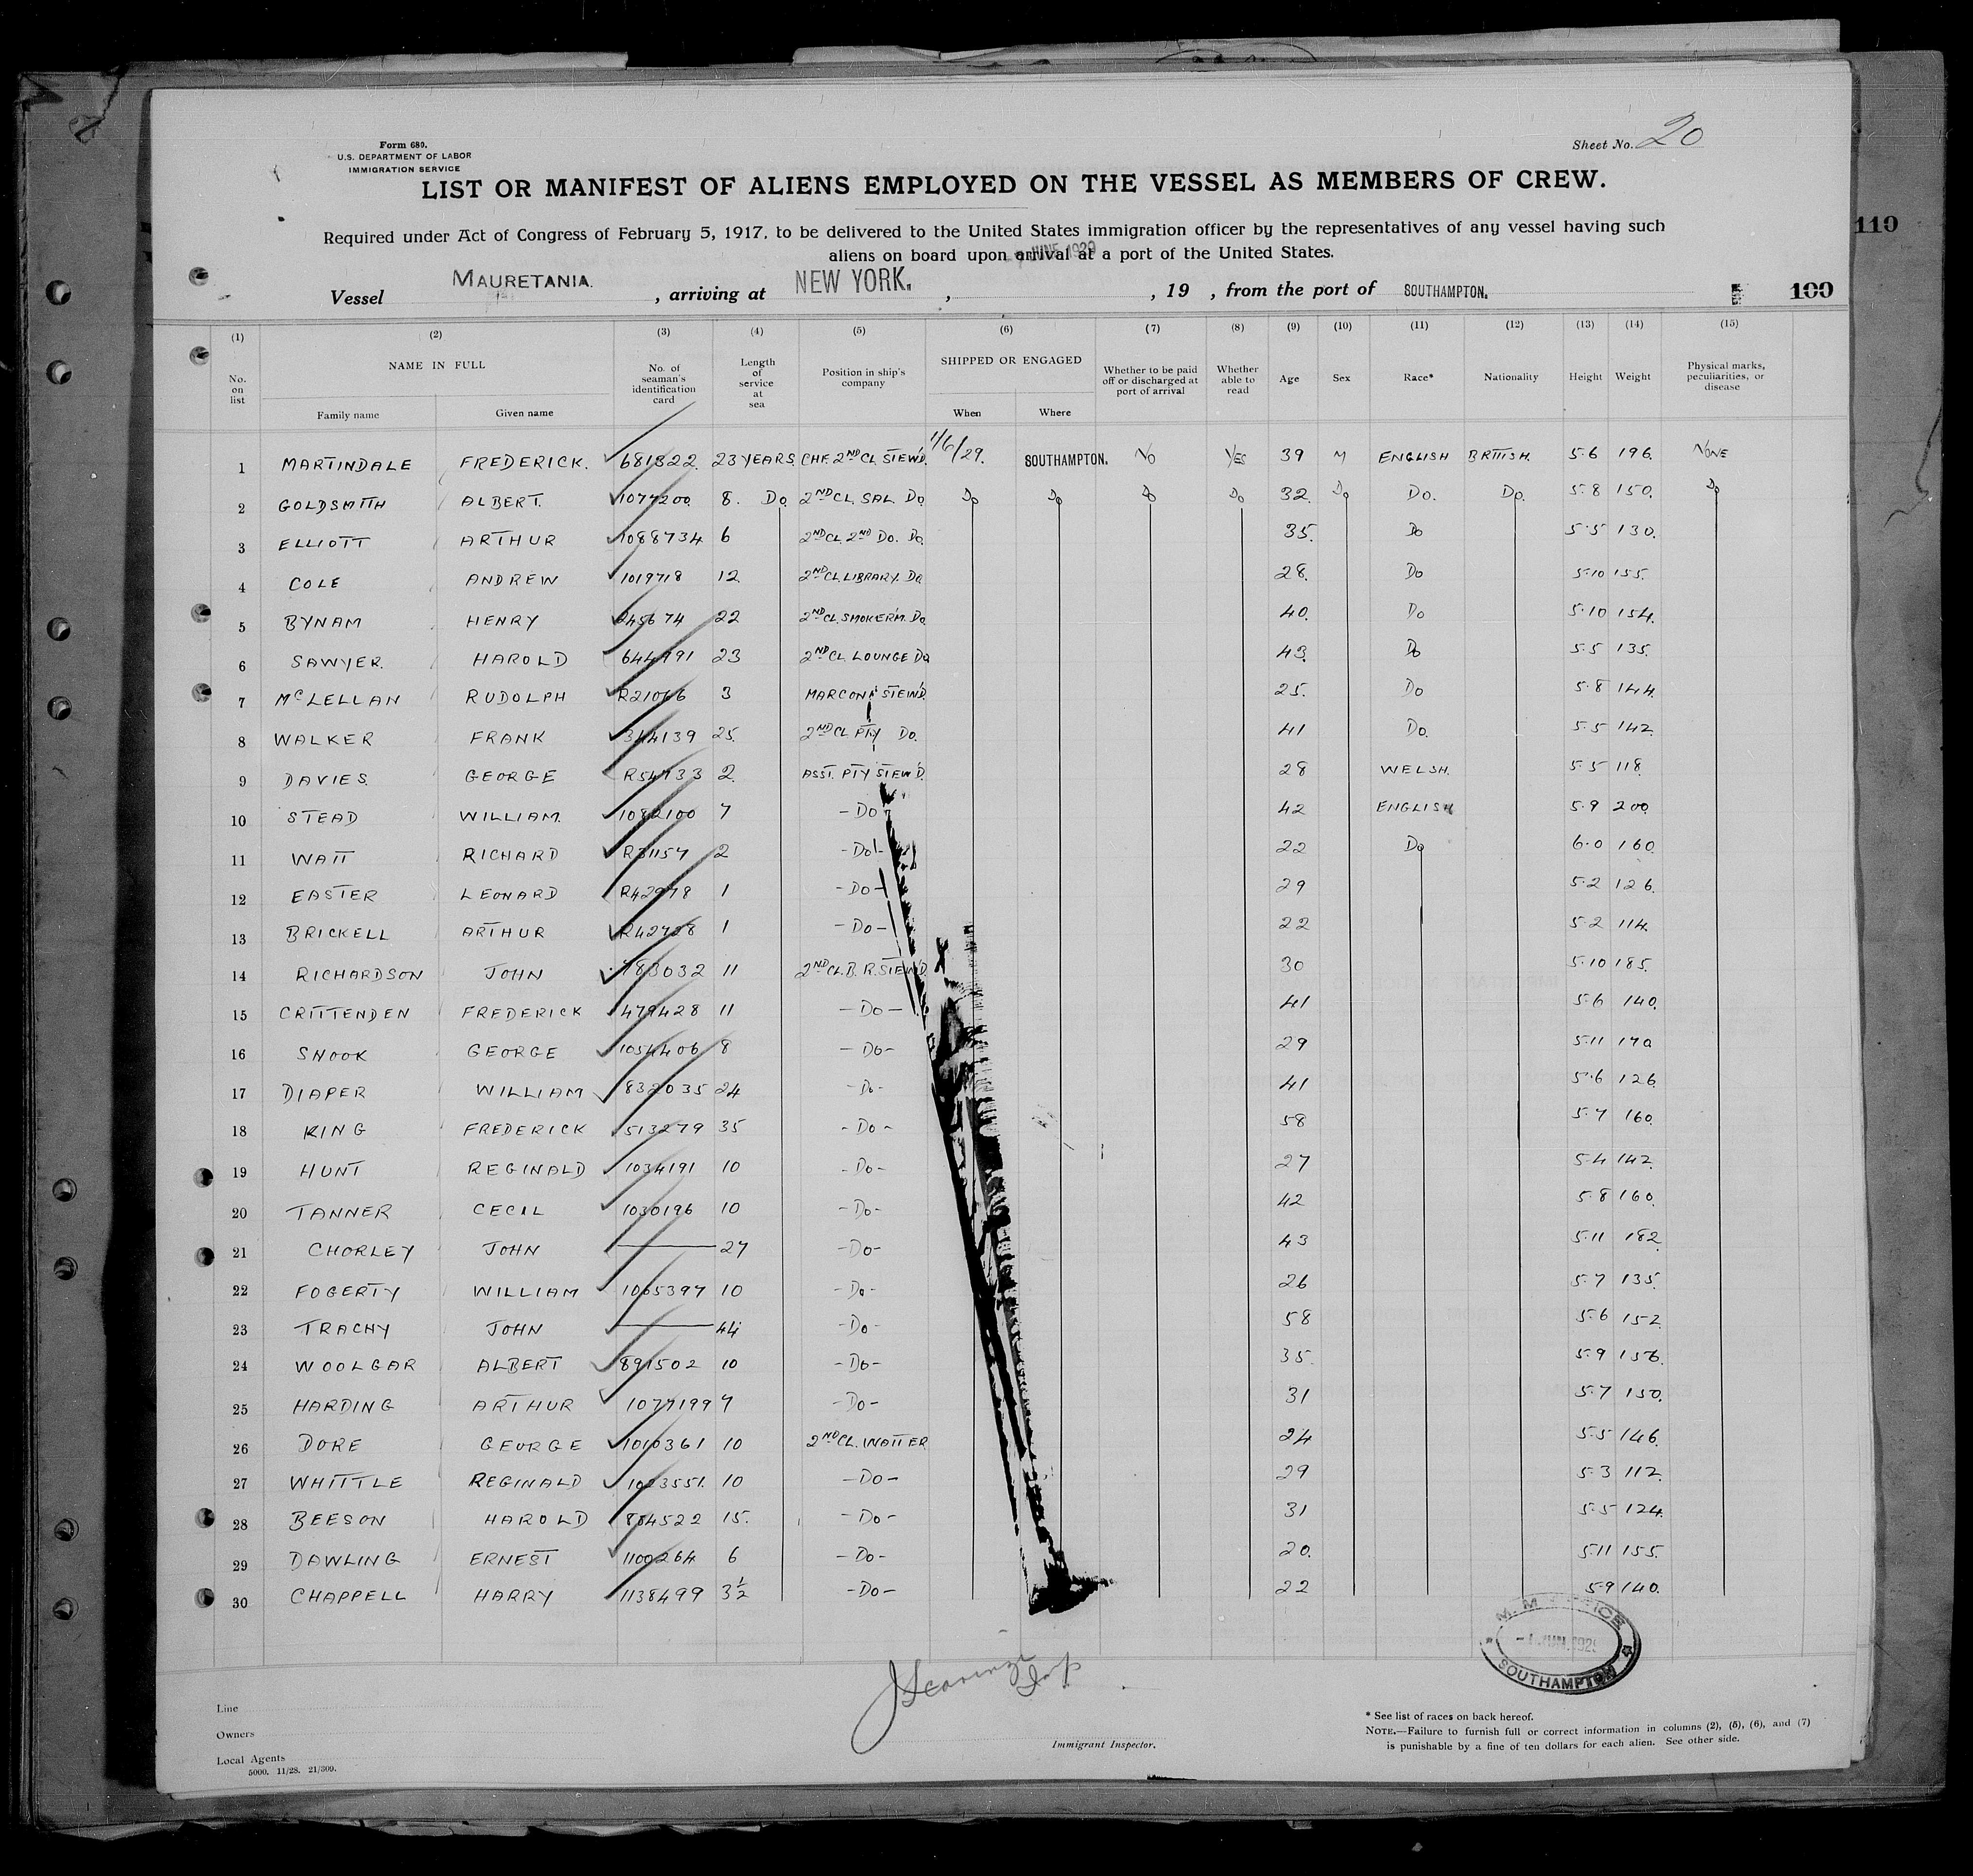 Sheet No. 20
Form 680.
U.S. DEPARTMENT OF LABOR
IMMIGRATION SERVICE
LIST OR MANIFEST OF ALIENS EMPLOYED ON THE VESSEL AS MEMBERS OF CREW.
Required under Act of Congress of February 5, 1917, to be delivered to the United States immigration officer by the representatives of any vessel having such
aliens on board upon arrival at a port of the United States.
JUNE 1929
110
Vessel MAURETANIA. , arriving at NEW YORK. , , 19 , from the port of SOUTHAMPTON. 100
(1) (2) (3) (4) (5) (6) (7) (8) (9) (10) (11) (12) (13) (14) (15)
No. on list NAME IN FULL Family name Given name No. of seaman's identification card Length of service at sea Position in ship's company SHIPPED OR ENGAGED When Where Whether to be paid off or discharged at port of arrival Whether able to read Age Sex Race* Nationality Height Weight Physical marks, peculiarities, or disease
1 MARTINDALE FREDERICK. 681822 23 YEARS CHF. 2ND CL. STEW'D. 1/6/29. SOUTHAMPTON. NO YES 39 M ENGLISH BRITISH. 5·6 196. NONE
2 GOLDSMITH ALBERT. 1077200 8. Do 2ND CL. SAL. Do Do Do Do Do 32. Do Do. Do. 5·8 150. Do
3 ELLIOTT ARTHUR 1088734 6 2ND CL. 2ND Do. Do. 35. Do 5·5 130.
4 COLE ANDREW 1019718 12 2ND CL. LIBRARY. Do 28. Do 5·10 155.
5 BYNAM HENRY 245674 22 2ND CL. SMOKER'M. Do 40. Do 5·10 154.
6 SAWYER. HAROLD 644791 23 2ND CL. LOUNGE Do 43. Do 5·5 135.
7 McLELLAN RUDOLPH R21066 3 MARCONI STEW'D. 25. Do 5·8 144.
8 WALKER FRANK 344139 25. 2ND CL. PTY Do. 41 Do. 5·5 142.
9 DAVIES. GEORGE R54733 2. ASST. PTY STEW'D. 28 WELSH. 5·5 118.
10 STEAD WILLIAM. 1082100 7 -Do- 42 ENGLISH 5·9 200.
11 WATT RICHARD R31157 2 -Do- 22 Do 6·0 160.
12 EASTER LEONARD R42978 1 -Do- 29 5·2 126.
13 BRICKELL ARTHUR R42728 1 -Do- 22 5·2 114.
14 RICHARDSON JOHN 783032 11 2ND CL. B.R. STEW'D. 30 5·10 185.
15 CRITTENDEN FREDERICK 479428 11 -Do- 41 5·6 140.
16 SNOOK GEORGE 1054406 8 -Do- 29 5·11 170
17 DIAPER WILLIAM 832035 24 -Do- 41 5·6 126.
18 KING FREDERICK 513279 35 -Do- 58 5·7 160.
19 HUNT REGINALD 1034191 10 -Do- 27 5·4 142.
20 TANNER CECIL 1030196 10 -Do- 42 5·8 160.
21 CHORLEY JOHN — 27 -Do- 43 5·11 182.
22 FOGERTY WILLIAM 1065397 10 -Do- 26 5·7 135.
23 TRACHY JOHN — 44 -Do- 58 5·6 152.
24 WOOLGAR ALBERT 891502 10 -Do- 35. 5·9 156.
25 HARDING ARTHUR 1077199 7 -Do- 31 5·7 150.
26 DORE GEORGE 1010361 10 2ND CL. WAITER 24 5·5 146.
27 WHITTLE REGINALD 1023551. 10 -Do- 29 5·3 112.
28 BEESON HAROLD 884522 15. -Do- 31 5·5 124.
29 DAWLING ERNEST 1100264 6 -Do- 20. 5·11 155.
30 CHAPPELL HARRY 1138499 3½ -Do- 22 5·9 140.
SOUTHAMPTON
Line
Owners
Local Agents
5000. 11/28. 21/309.
Immigrant Inspector.
* See list of races on back hereof.
NOTE.—Failure to furnish full or correct information in columns (2), (5), (6), and (7)
is punishable by a fine of ten dollars for each alien. See other side.